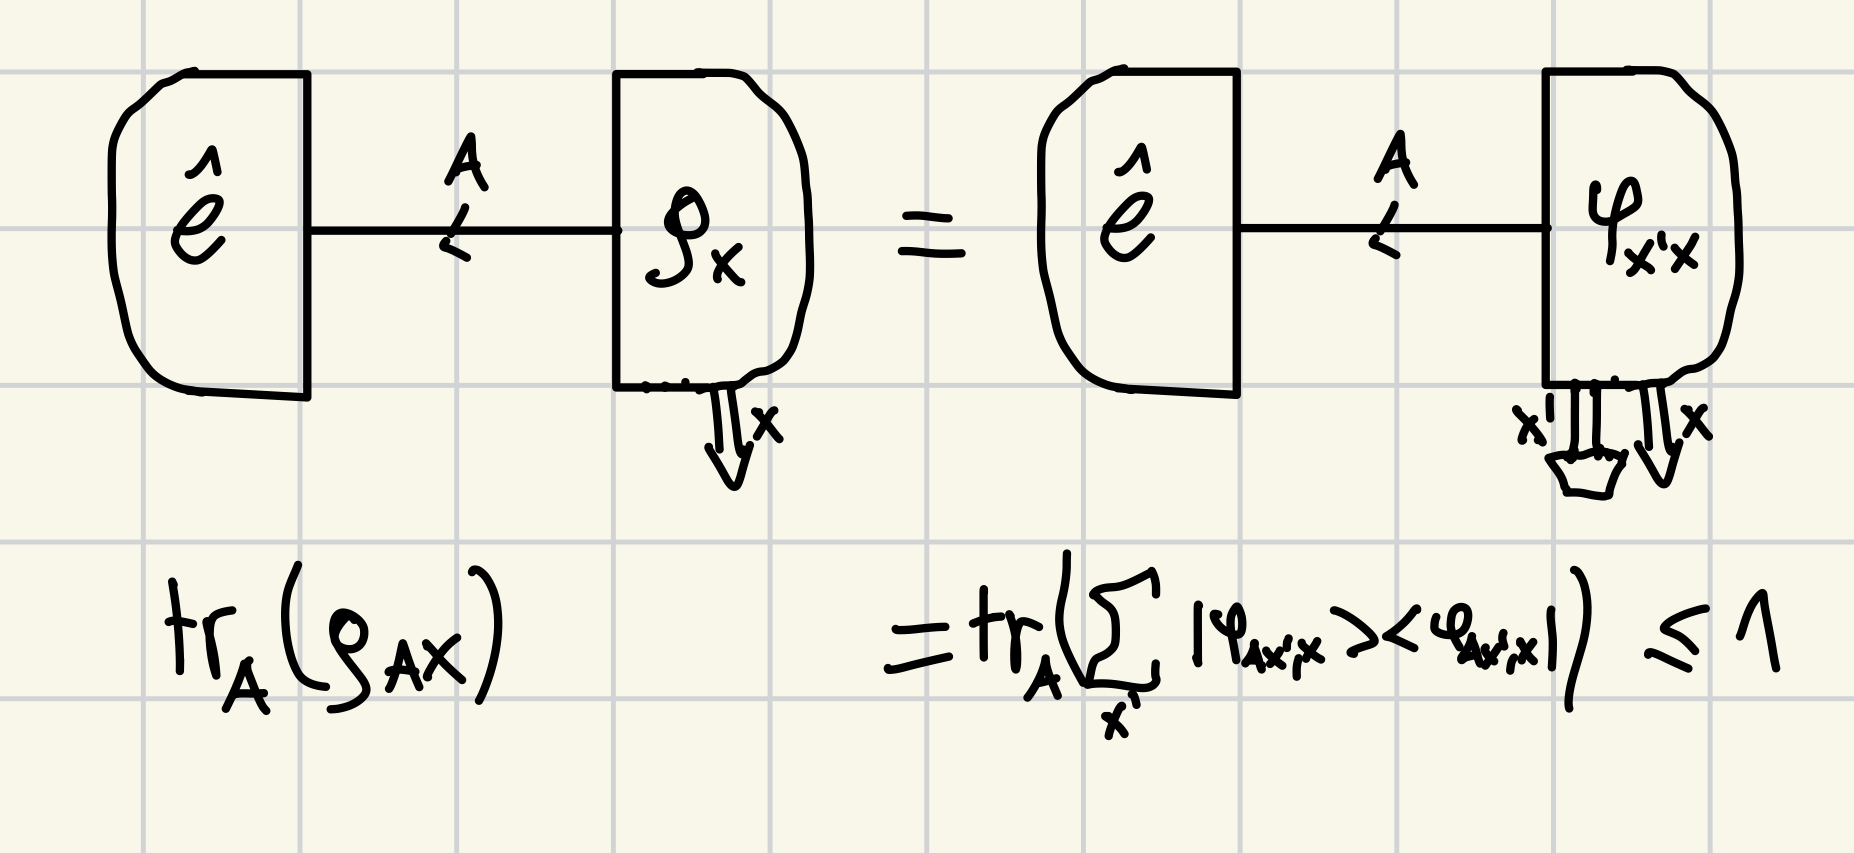 ê A ρ_x = ê A φ_x'x
x x' x
tr_A(ρ_Ax) = tr_A(Σ_x' |φ_Ax',x><φ_Ax',x|) ≤ 1